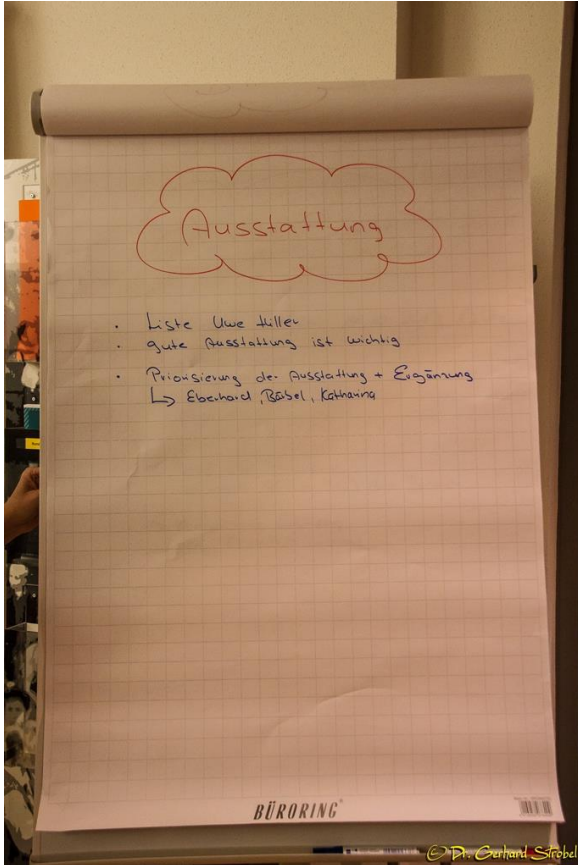 Ausstattung
· Liste Uwe Hiller
· gute Ausstattung ist wichtig
· Priorisierung der Ausstattung + Ergänzung
↳ Eberhard, Bärbel, Katharina
BÜRORING
© Dr. Gerhard Strobel